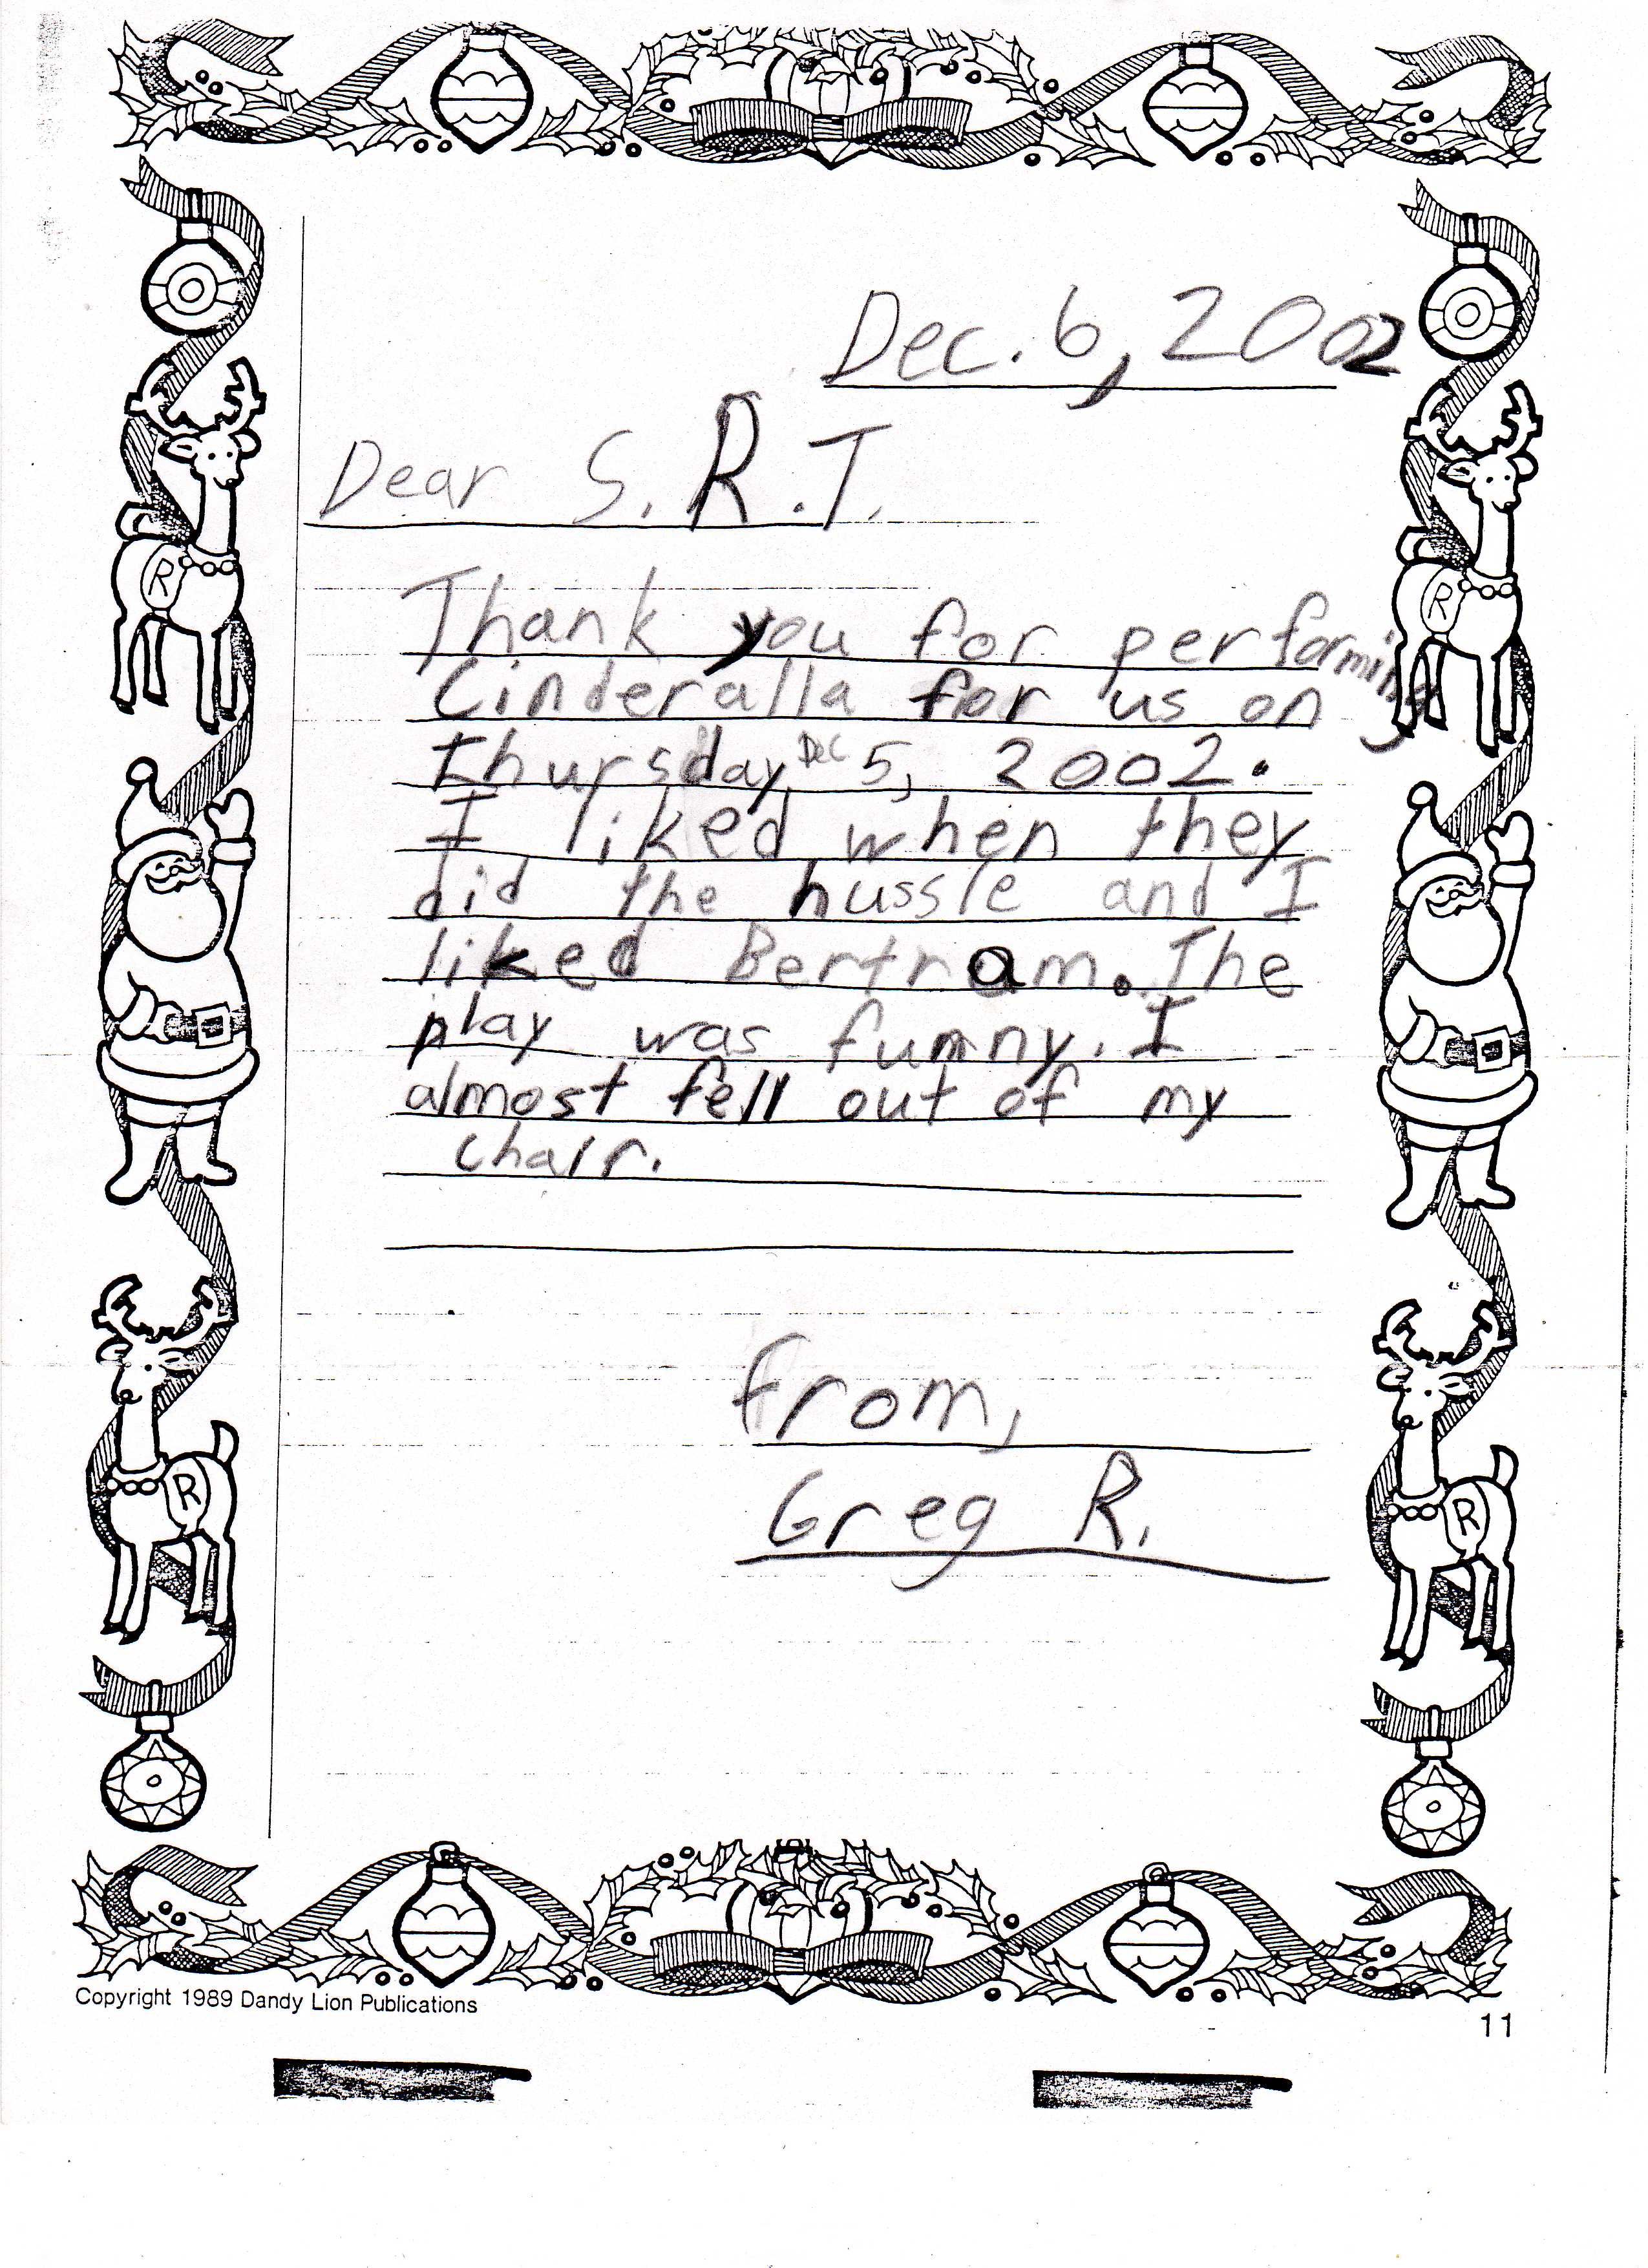 Dec. 6, 2002
Dear S.R.T.
Thank you for performing
Cinderalla for us on
thursday, Dec 5, 2002.
I liked when they
did the hussle and I
liked Bertram. The
play was funny. I
almost fell out of my
chair.
from,
Greg R.
R
R
R
R
Copyright 1989 Dandy Lion Publications
11